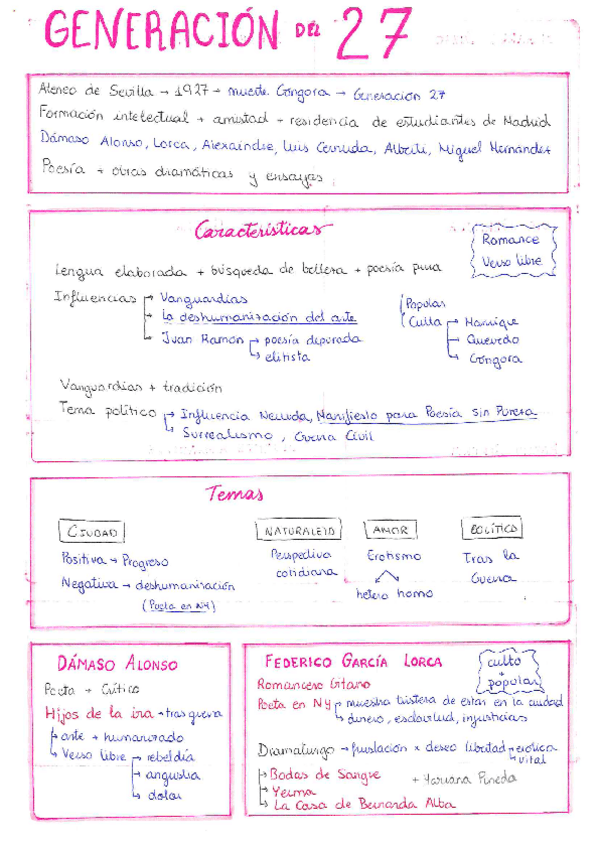 GENERACIÓN DEL 27
Ateneo de Sevilla → 1927 → muerte Góngora → Generación 27
Formación intelectual + amistad + residencia de estudiantes de Madrid
Dámaso Alonso, Lorca, Alexaindre, Luis Cernuda, Alberti, Miguel Hernández
Poesía + obras dramáticas y ensayos
Características
Romance
Verso libre
Lengua elaborada + búsqueda de belleza + poesía pura
Influencias → Vanguardias
→ La deshumanización del arte
→ Juan Ramón → poesía depurada
→ elitista
Popular
Culta → Manrique
→ Quevedo
→ Góngora
Vanguardias + tradición
Tema político → Influencia Neruda, Manifiesto para Poesía sin Pureza
→ Surrealismo, Guerra Civil
Temas
CIUDAD
Positiva → Progreso
Negativa → deshumanización
(Poeta en NY)
NATURALEZA
Perspectiva
cotidiana
AMOR
Erotismo
hetero homo
POLÍTICO
Tras la
Guerra
DÁMASO ALONSO
Poeta + Crítico
Hijos de la ira → tras guerra
→ arte + humanizado
→ Verso libre → rebeldía
→ angustia
→ dolor
FEDERICO GARCÍA LORCA
culto
+
popular
Romancero Gitano
Poeta en NY → muestra tristeza de estar en la ciudad
→ dinero, esclavitud, injusticias
Dramaturgo → frustración x deseo libertad → erótica
→ vital
→ Bodas de Sangre
+ Mariana Pineda
→ Yerma
→ La Casa de Bernarda Alba